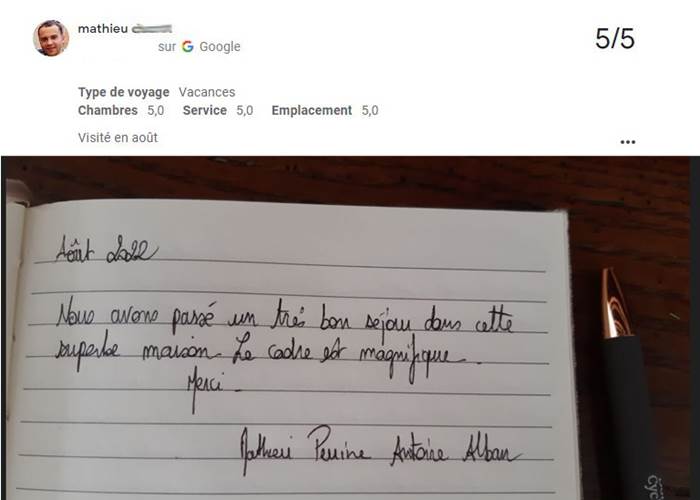 mathieu
sur Google
5/5
Type de voyage Vacances
Chambres 5,0 Service 5,0 Emplacement 5,0
Visité en août
Août 2022
Nous avons passé un très bon séjour dans cette
superbe maison. Le cadre est magnifique.
Merci.
Mathieu Perrine Antoine Alban